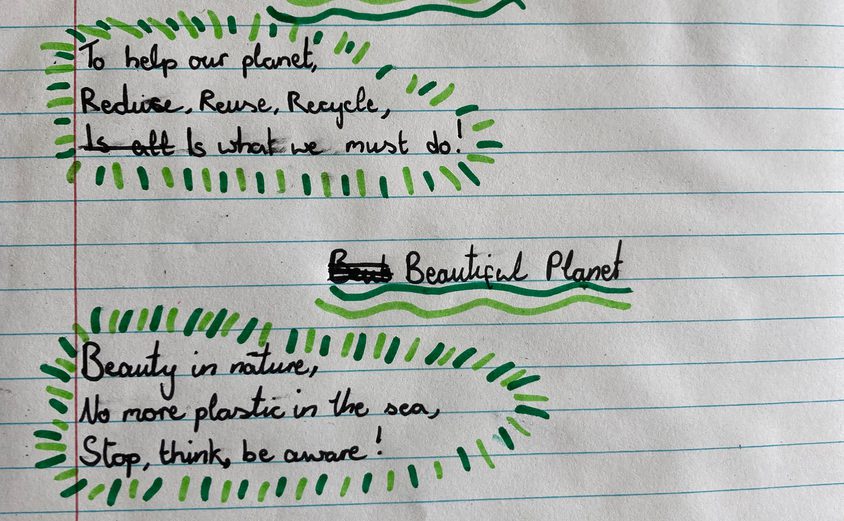 To help our planet,
Reduce, Reuse, Recycle,
Is all Is what we must do!
Beut Beautiful Planet
Beauty in nature,
No more plastic in the sea,
Stop, think, be aware!